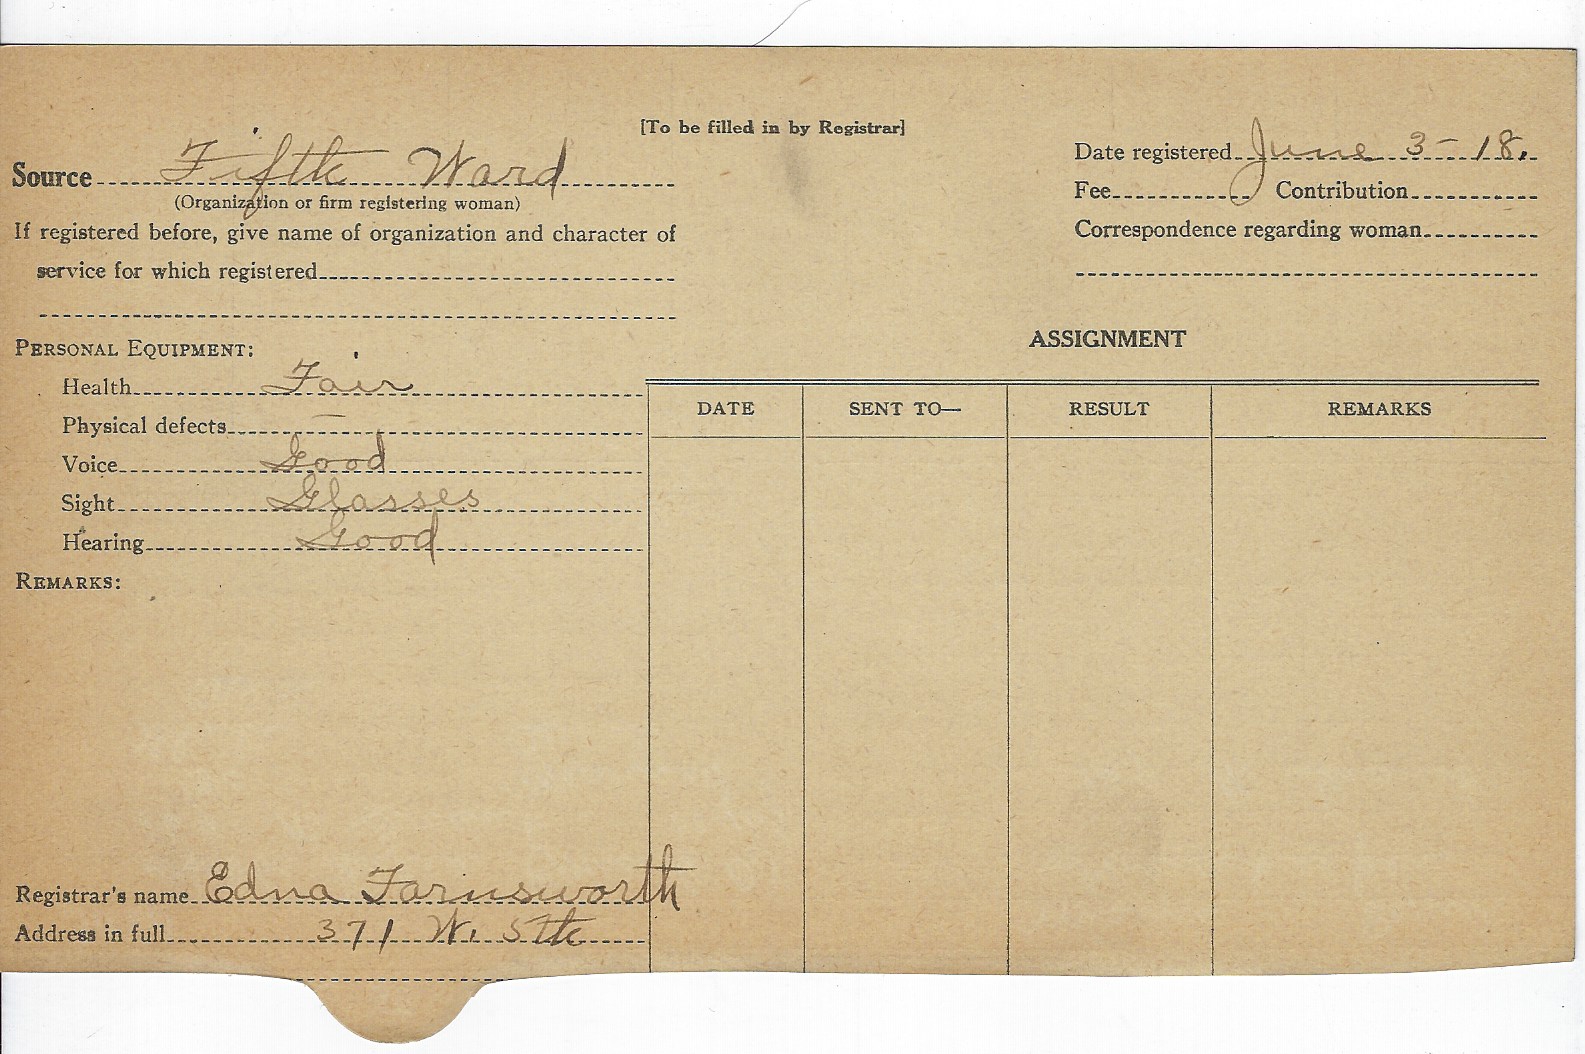 [To be filled in by Registrar]
Source Fifth Ward
(Organization or firm registering woman)
If registered before, give name of organization and character of
service for which registered
Date registered June 3-18.
Fee Contribution
Correspondence regarding woman
PERSONAL EQUIPMENT:
Health Fair
Physical defects —
Voice Good
Sight Glasses
Hearing Good
REMARKS:
ASSIGNMENT
DATE SENT TO— RESULT REMARKS
Registrar's name Edna Farnsworth
Address in full 371 W. 5th